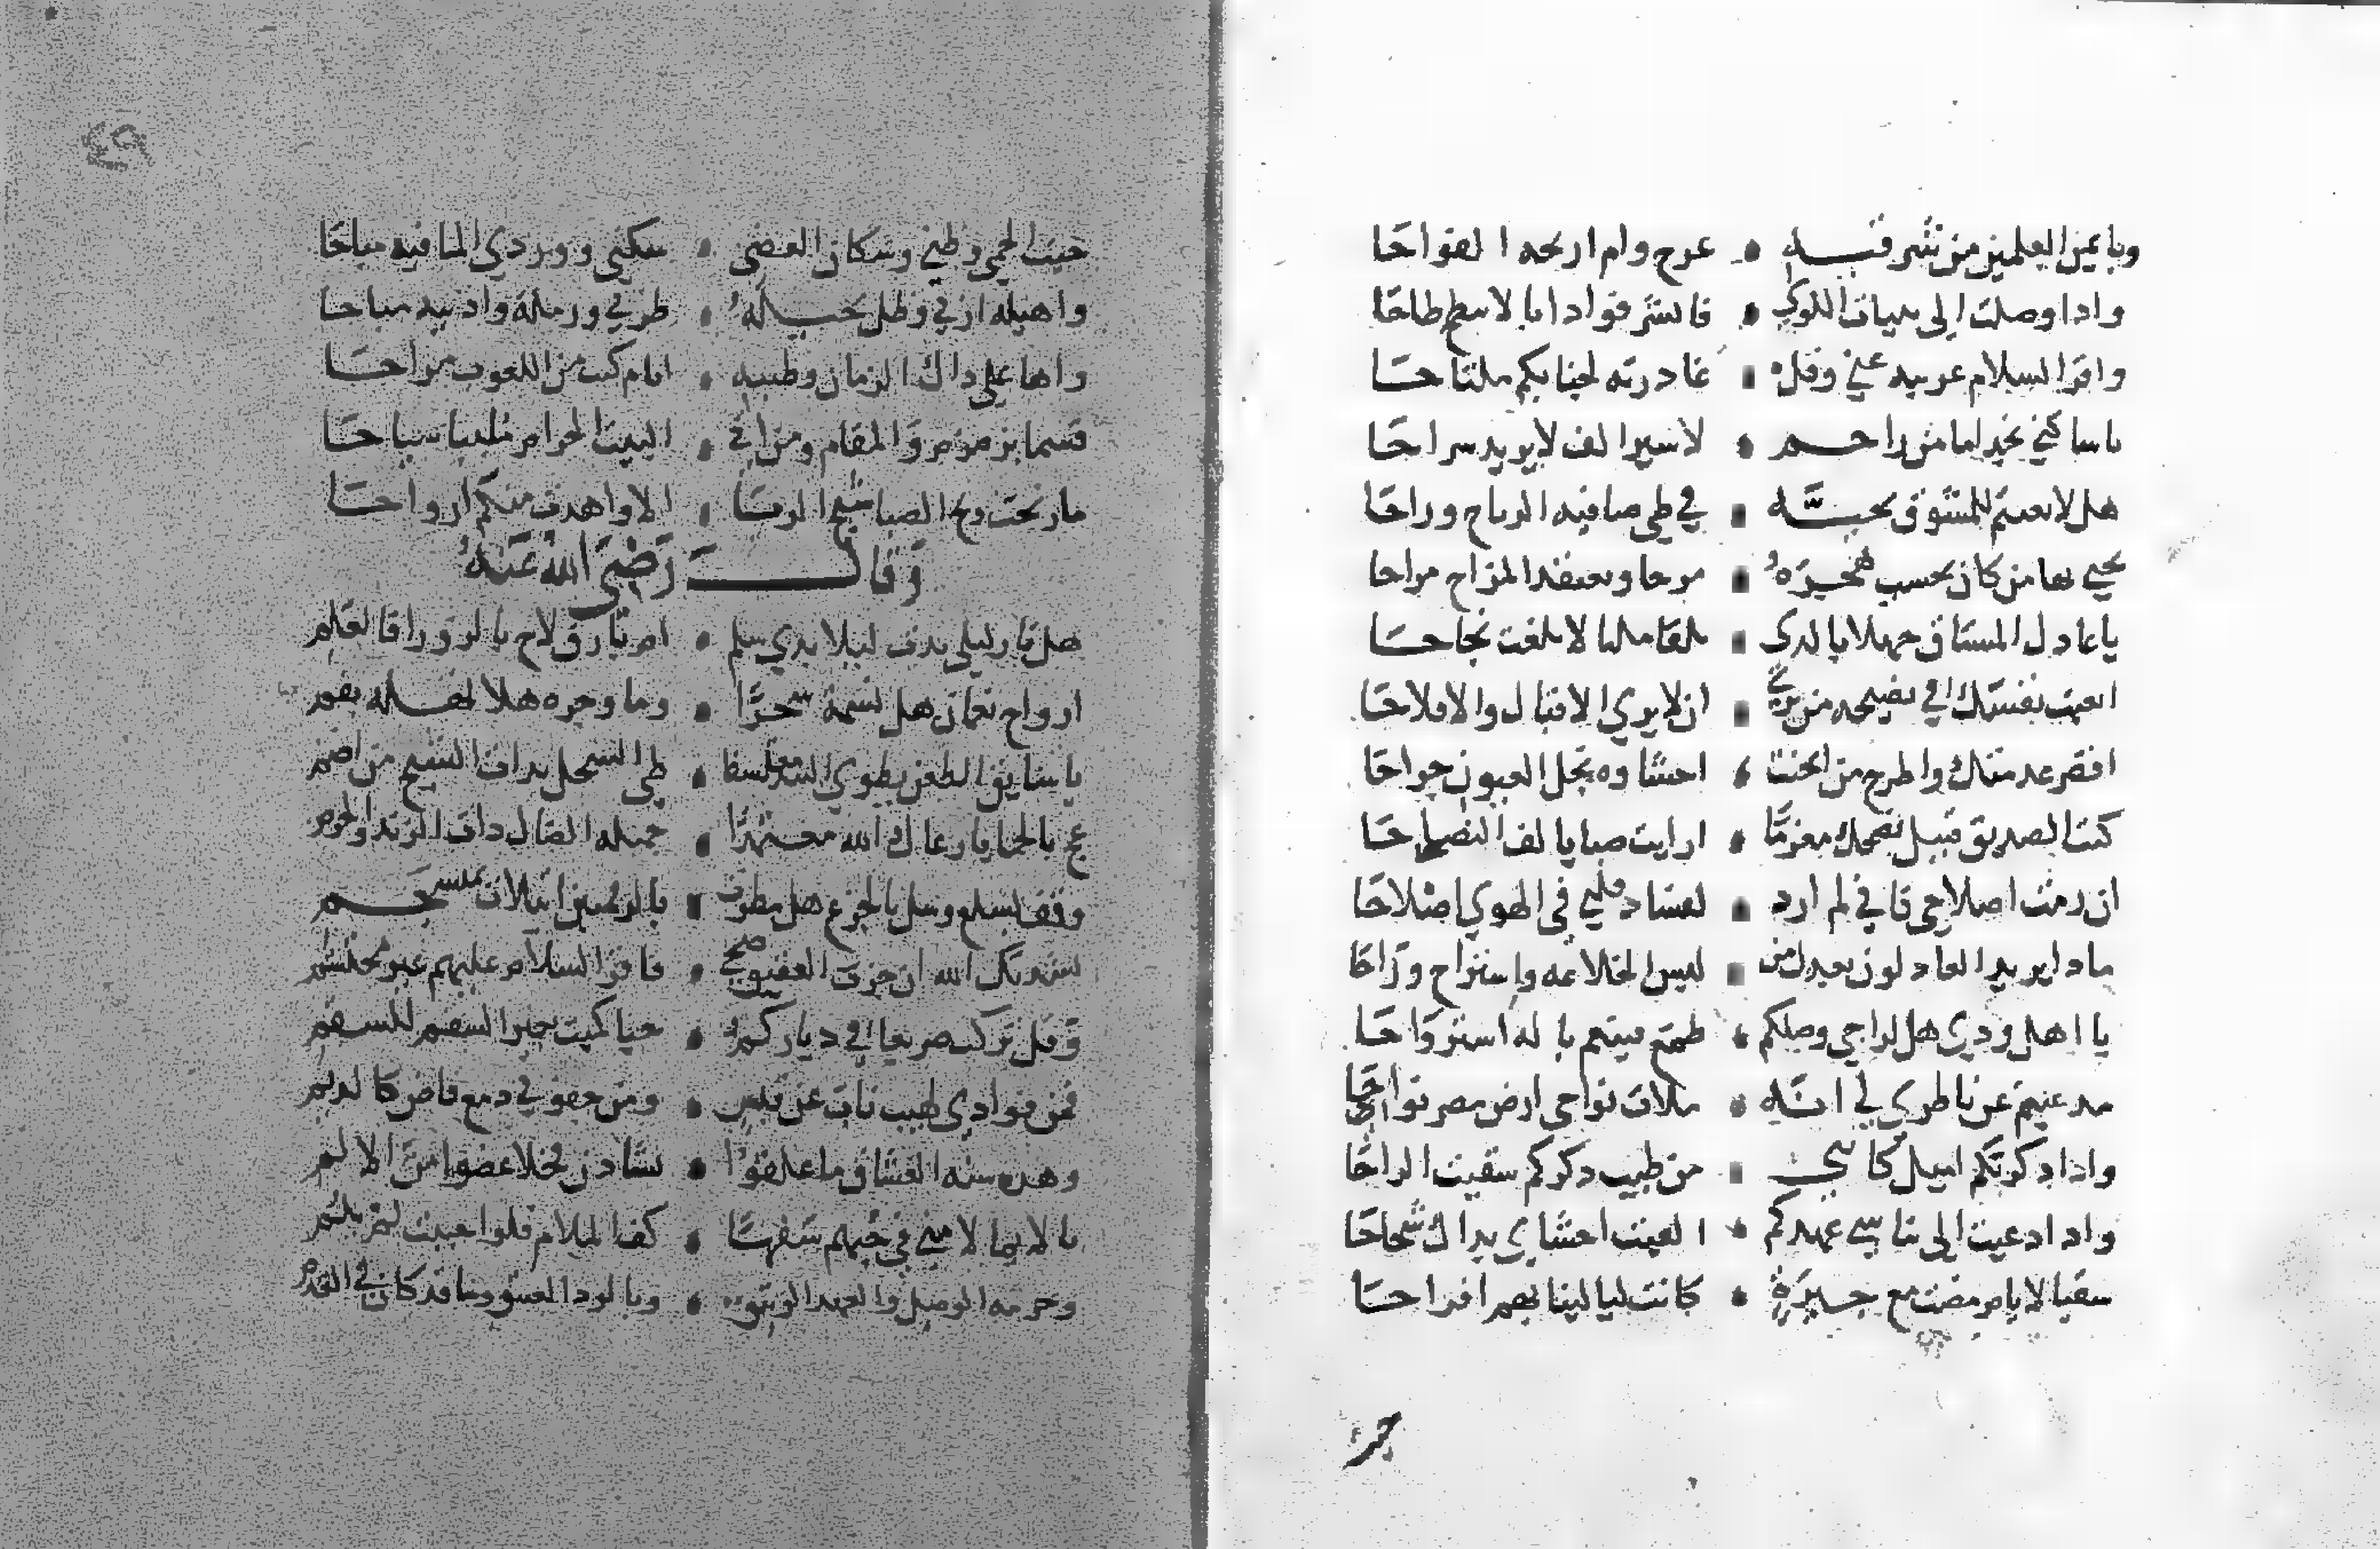 وبايمن العلمين من شرقيه • عرج وام ارىحه الفواحا
واذا وصلت الى ثنيات اللوى • فانشد فوادا بالابيطح طاحا
واقرا السلام عريبه عني وقل • غادرته لجنابكم ملتاحا
ياساكني نجد امامن راحم • لاسير الف لايريد سراحا
هلا بعثتم للمشوق تحية • في طي صافيه الرياح رواحا
يحيي بها من كان يحسب هجركم • مزحا ويعتقد المزاح مزاحا
ياعاذل المشتاق جهلا بالذى • يلقا مليا لابلغت نجاحا
اتعبت نفسك في نصيحه من يرى • ان لايرى الاقبال والافلاحا
اقصر عدمتك واطرح من اثخنت • احشاوه نجل العيون جراحا
كنت الصديق قبيل نصحك مغرما • ارايت صبا يالف النصاحا
ان رمت اصلاحي فاني لم ارد • لفساد قلبي فى الهوي اصلاحا
ماذا يريد العاذلون بعذل من • لبس الخلاعه واستراح وراحا
يا اهل ودي هل لراجي وصلكم • طمع فينعم باله استرواحا
مذ غبتم عن ناظري لي انه • ملات نواحي ارض مصر نواحا
واذا ذكرتكم اميل كانني • من طيب ذكركم سقيت الراحا
واذا دعيت الى تناسي عهدكم • الفيت احشاي بذاك شحاحا
سقيا لايام مضت مع جيرة • كانت ليالينا بهم افراحا
حيث الحمى وطني وسكان الغضى • سكني ووردى الما فيه مباحا
واهيله اربي وظل نخيله • طربي ورملة واديه مراحا
واها على ذاك الزمان وطيبه • ايام كنت من اللغوب مراحا
قسما بزمزم والمقام ومن اتى • البيت الحرام ملبيا سياحا
مارنحت ريح الصبا شيح الربا • الا واهدت منكم ارواحا
وقال رضى الله عنه
هل نار ليلى بدت ليلا بذي سلم • ام بارق لاح بالزورا فالعلم
ارواح نعمان هلا نسمة سحرا • وما وجره هلا نهله بفم
يا سايق الظعن يطوي البيد معتسفا • طى السجل بذات الشيح من اضم
عج بالحما يارعاك الله معتمدا • خميله الضال ذات الرند والخزم
وقف بسلع وسل بالجزع هل مطرت • بالرقمتين اثيلات بمنسجم
نشدتك الله ان جزت العقيق ضحى • فاقرا السلام عليهم غير محتشم
وقل تركت صريعا في دياركم • حيا كميت يعير السقم للسقم
فمن فوادي لهيب ناب عن قبس • ومن جفوني دمع فاض كالديم
وهذه سنه العشاق ما علقوا • بشادن فخلا عضوا من الالم
يا لايما لامني في حبهم سفها • كف الملام فلو احببت لم تلم
وحرمه الوصل والعهد الوثيق • وبالود العتيق وما قد كان في القدم